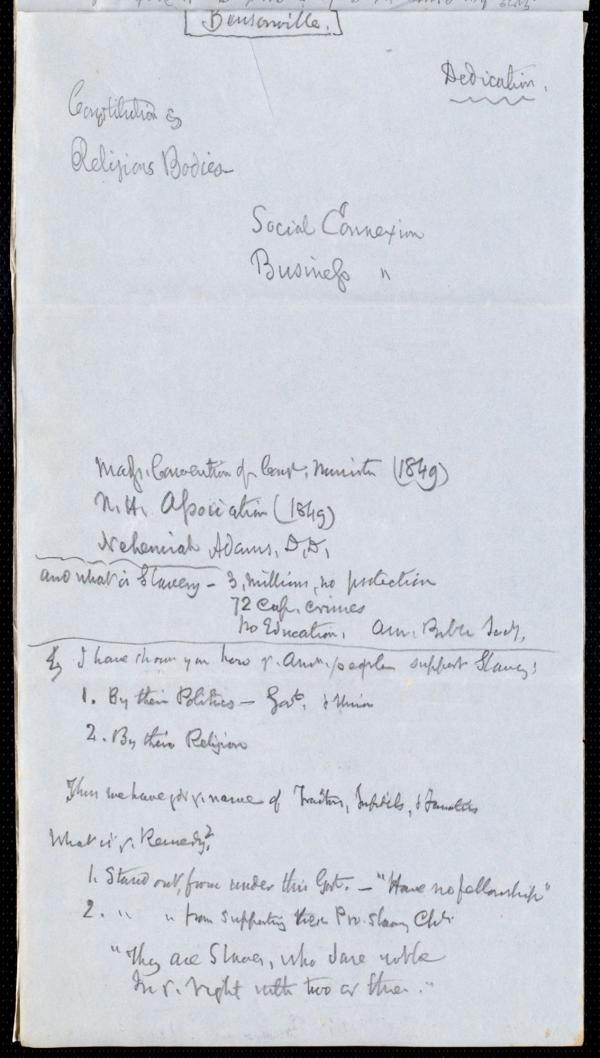 Bensonville.
Dedication.
Constitution &
Religious Bodies
Social Connexion
Business "
Mass. Convention of Cong. Ministers (1849)
N. H. Association (1849)
Nehemiah Adams, D.D.
and what is Slavery – 3, millions, no protection
72 cap. crimes
No Education. Am. Bible Socy.
I have shown you how ye. Amn. people support Slavery:
1. By their Politics – Govt. & Union
2. By their Religion
Thus we have got ye. name of Traitors, Infidels, & Fanatics
What is ye. Remedy?
1. Stand out from under this Govt. – "Have no fellowship"
2. " " from supporting these Pro-slavery Chs.
"They are Slaves, who dare not be
In ye. right with two or three."